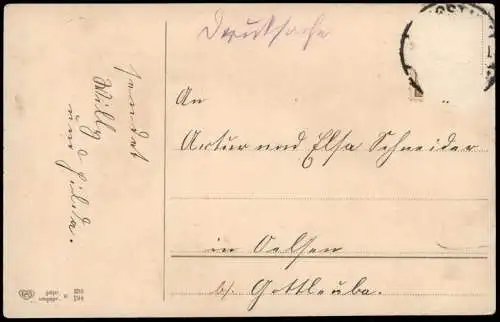 Drucksache
An
Artur und Elsa Schneider
in Oelsen
b/. Gottleuba.
sendet
Willy
und Hilda.